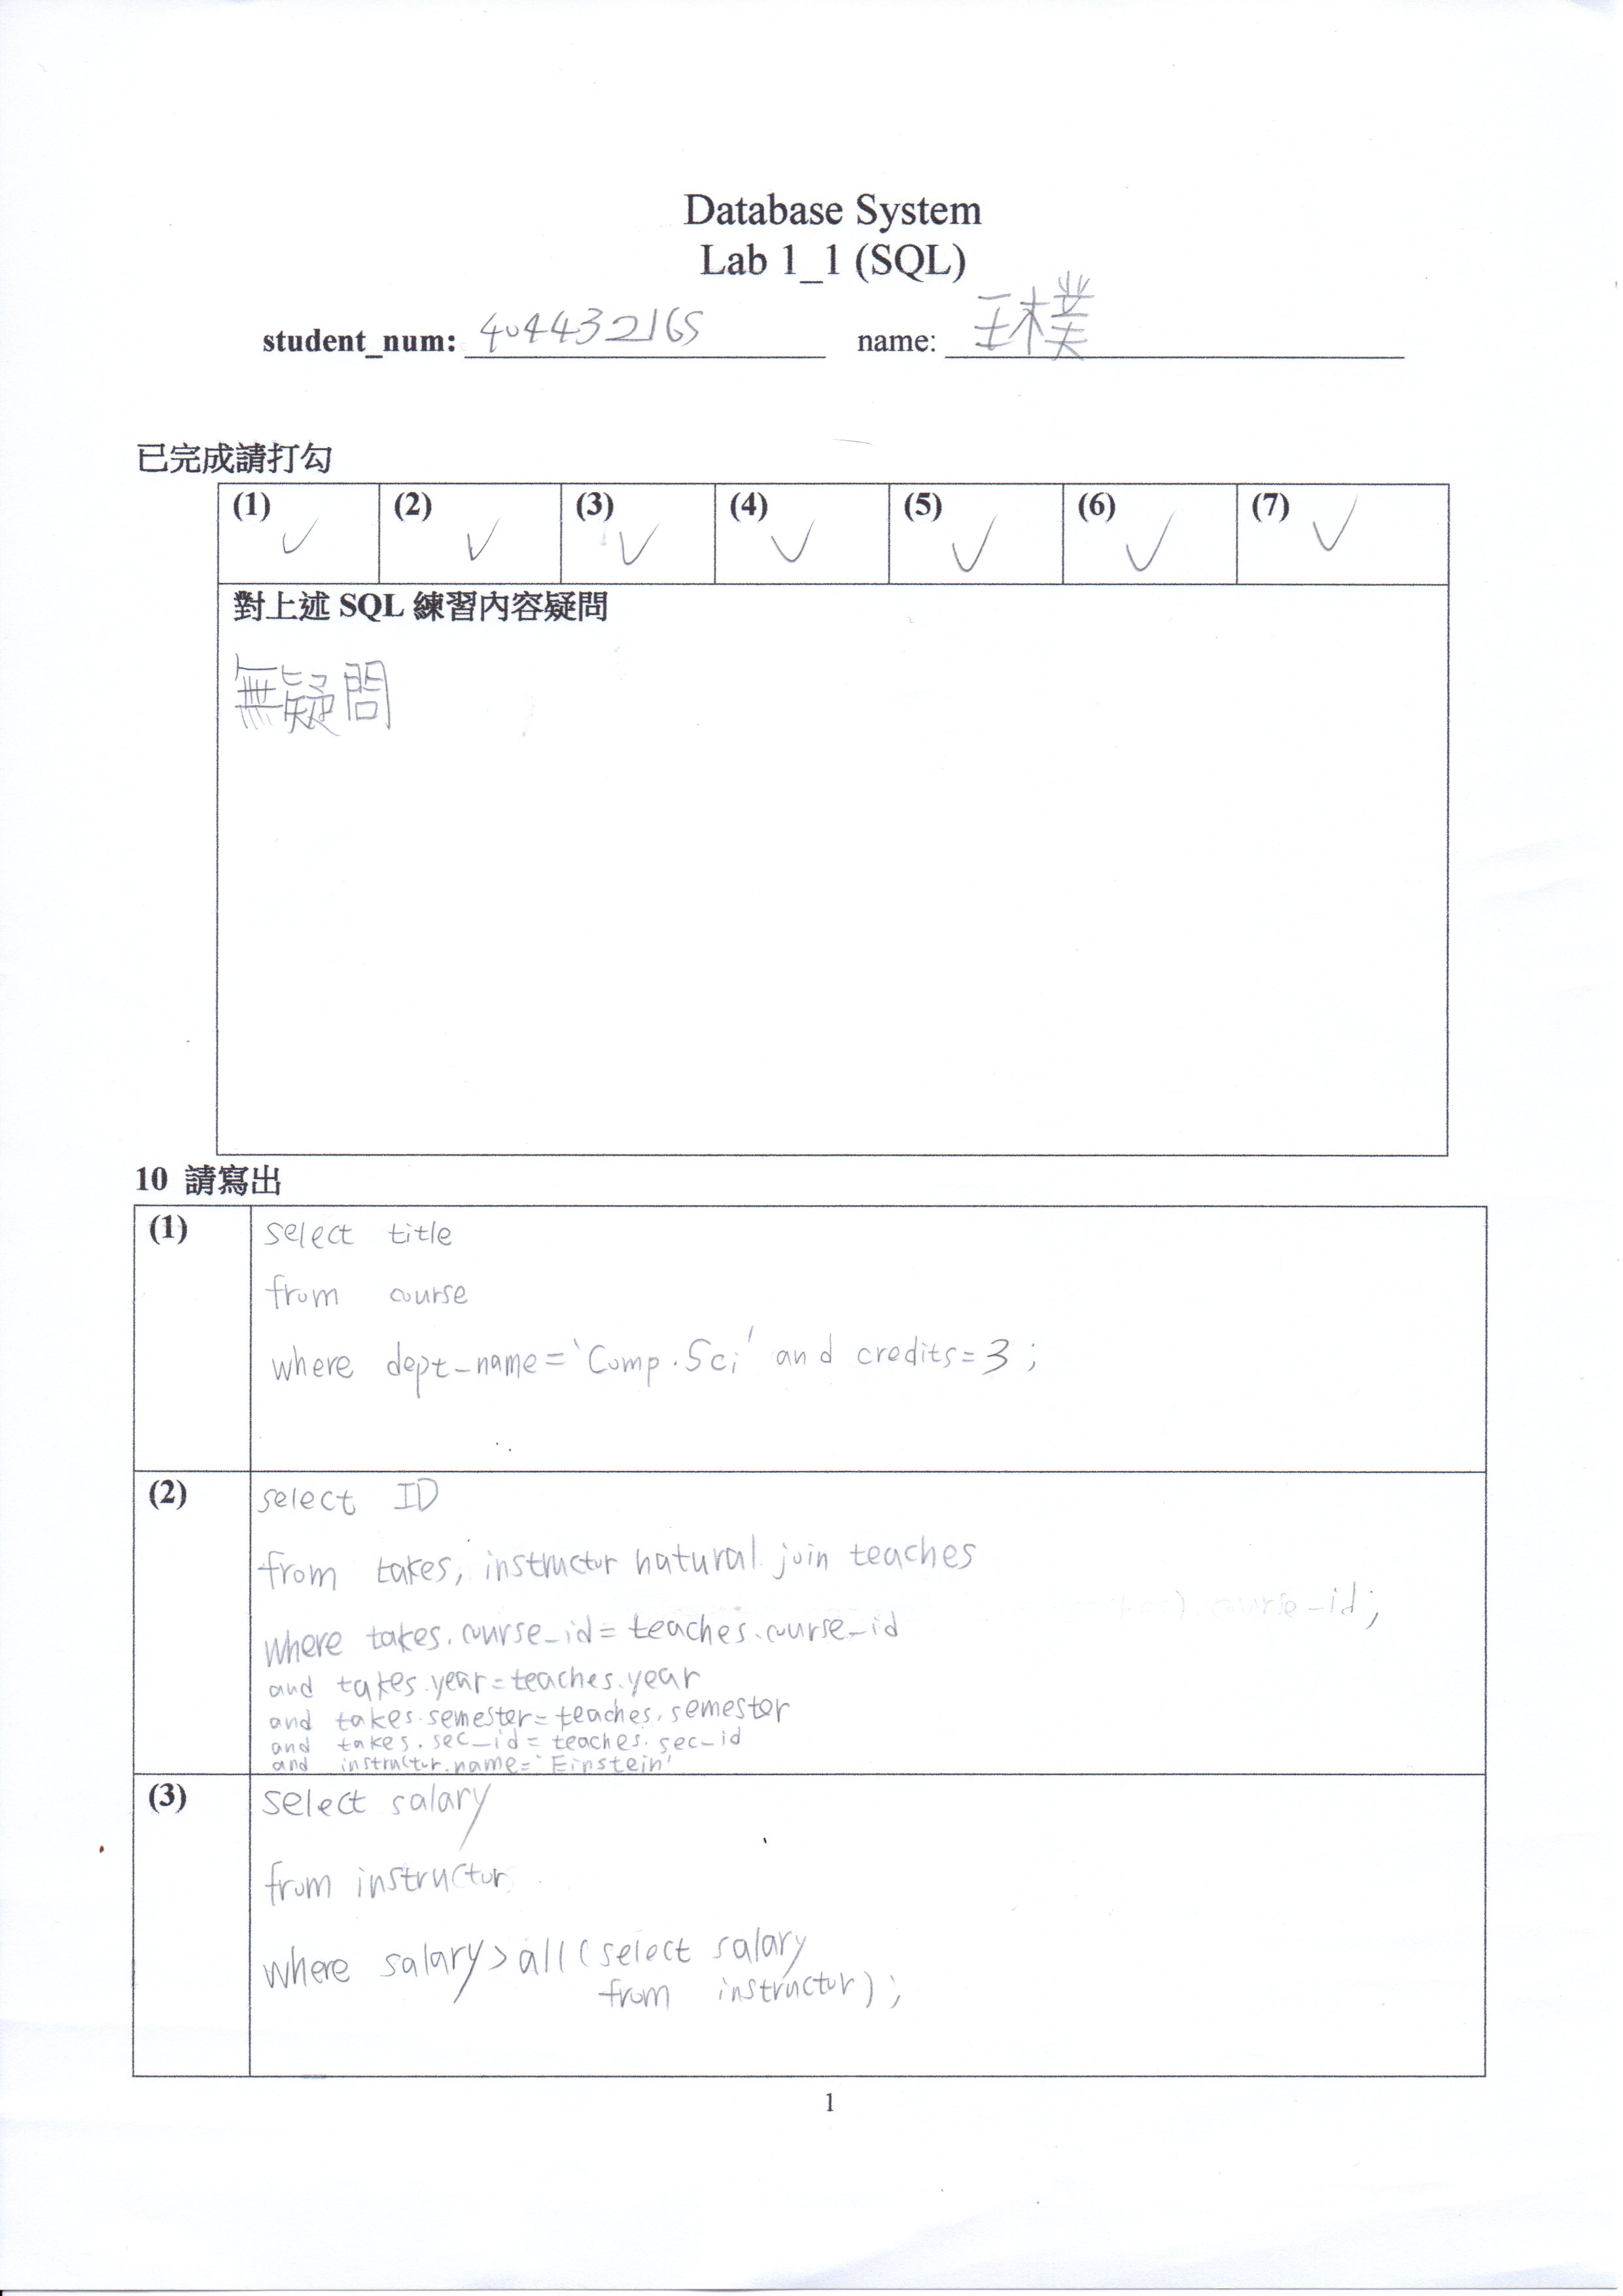 Database System
Lab 1_1 (SQL)
student_num: 404432165 name: 王樸
已完成請打勾
(1) ✓ (2) ✓ (3) ✓ (4) ✓ (5) ✓ (6) ✓ (7) ✓
對上述 SQL 練習內容疑問
無疑問
10 請寫出
(1) select title
from course
where dept_name=‘Comp.Sci’ and credits=3;
(2) select ID
from takes, instructor natural join teaches
course_id;
where takes.course_id=teaches.course_id
and takes.year=teaches.year
and takes.semester=teaches.semester
and takes.sec_id=teaches.sec_id
and instructor.name=‘Einstein’
(3) select salary
from instructor
where salary>all(select salary
from instructor);
1